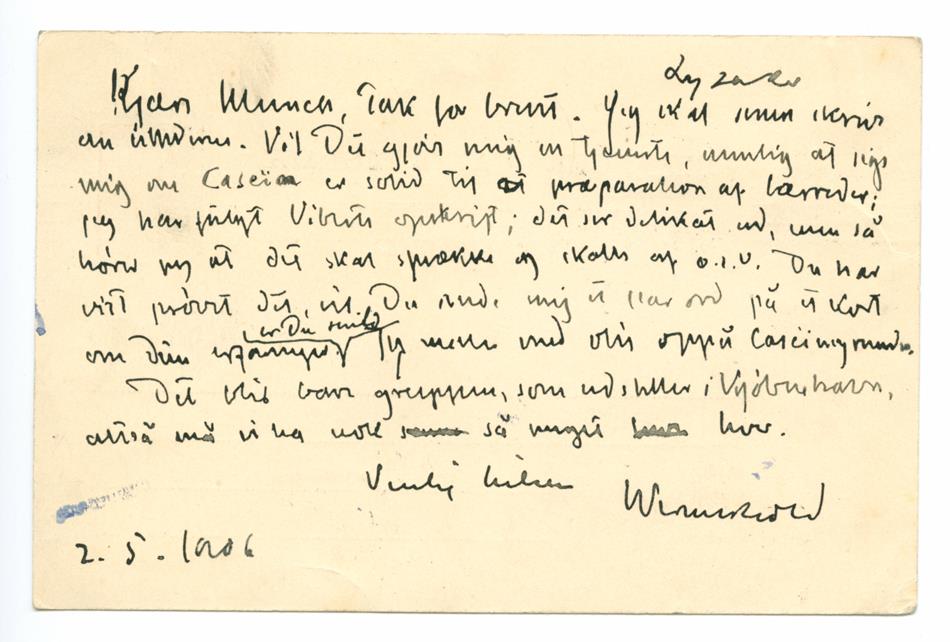 Lysaker
Kjære Munch, Tak for brevet. Jeg skal snart skrive
om Vil Du gjøre mig en tjeneste, nemlig at sige
mig om Caseïn er solid til præparation af lærreder;
jeg har fulgt Viberts opskrift; det ser delikat ud, men så
hører jeg at det skal sprække og skalle af o.s.v. Du har
vist prøvet det, vil Du sende mig et par ord på et kort
er Du snild
om dine erfaringer Jeg maler med olie oppå Caseïngrunden.
Det blir bare gruppen, som udstiller i Kjøbenhavn,
altså må vi ha nok så meget hver.
Venlig hilsen
Werenskiold
2. 5. 1906